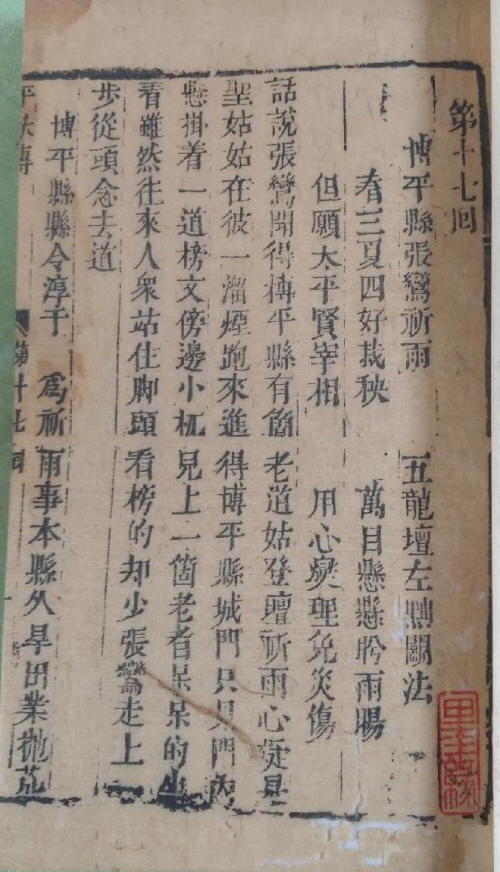 第十七回
博平縣張鸞祈雨　五龍壇左黜鬭法
春三夏四好栽秧　萬目懸懸盼雨暘
但願太平賢宰相　用心爕理免災傷
話說張鸞聞得博平縣有箇老道姑登壇祈雨心疑是
聖姑姑在彼一溜煙跑來進得博平縣城門只見門內
懸掛着一道榜文傍邊小杌兒上一箇老者呆呆的坐
看雖然往來人衆站住脚頭看榜的却少張鸞走上一
步從頭念去道
博平縣縣令淳于　爲祈雨事本縣久旱田業抛荒
平妖傳　第十七回